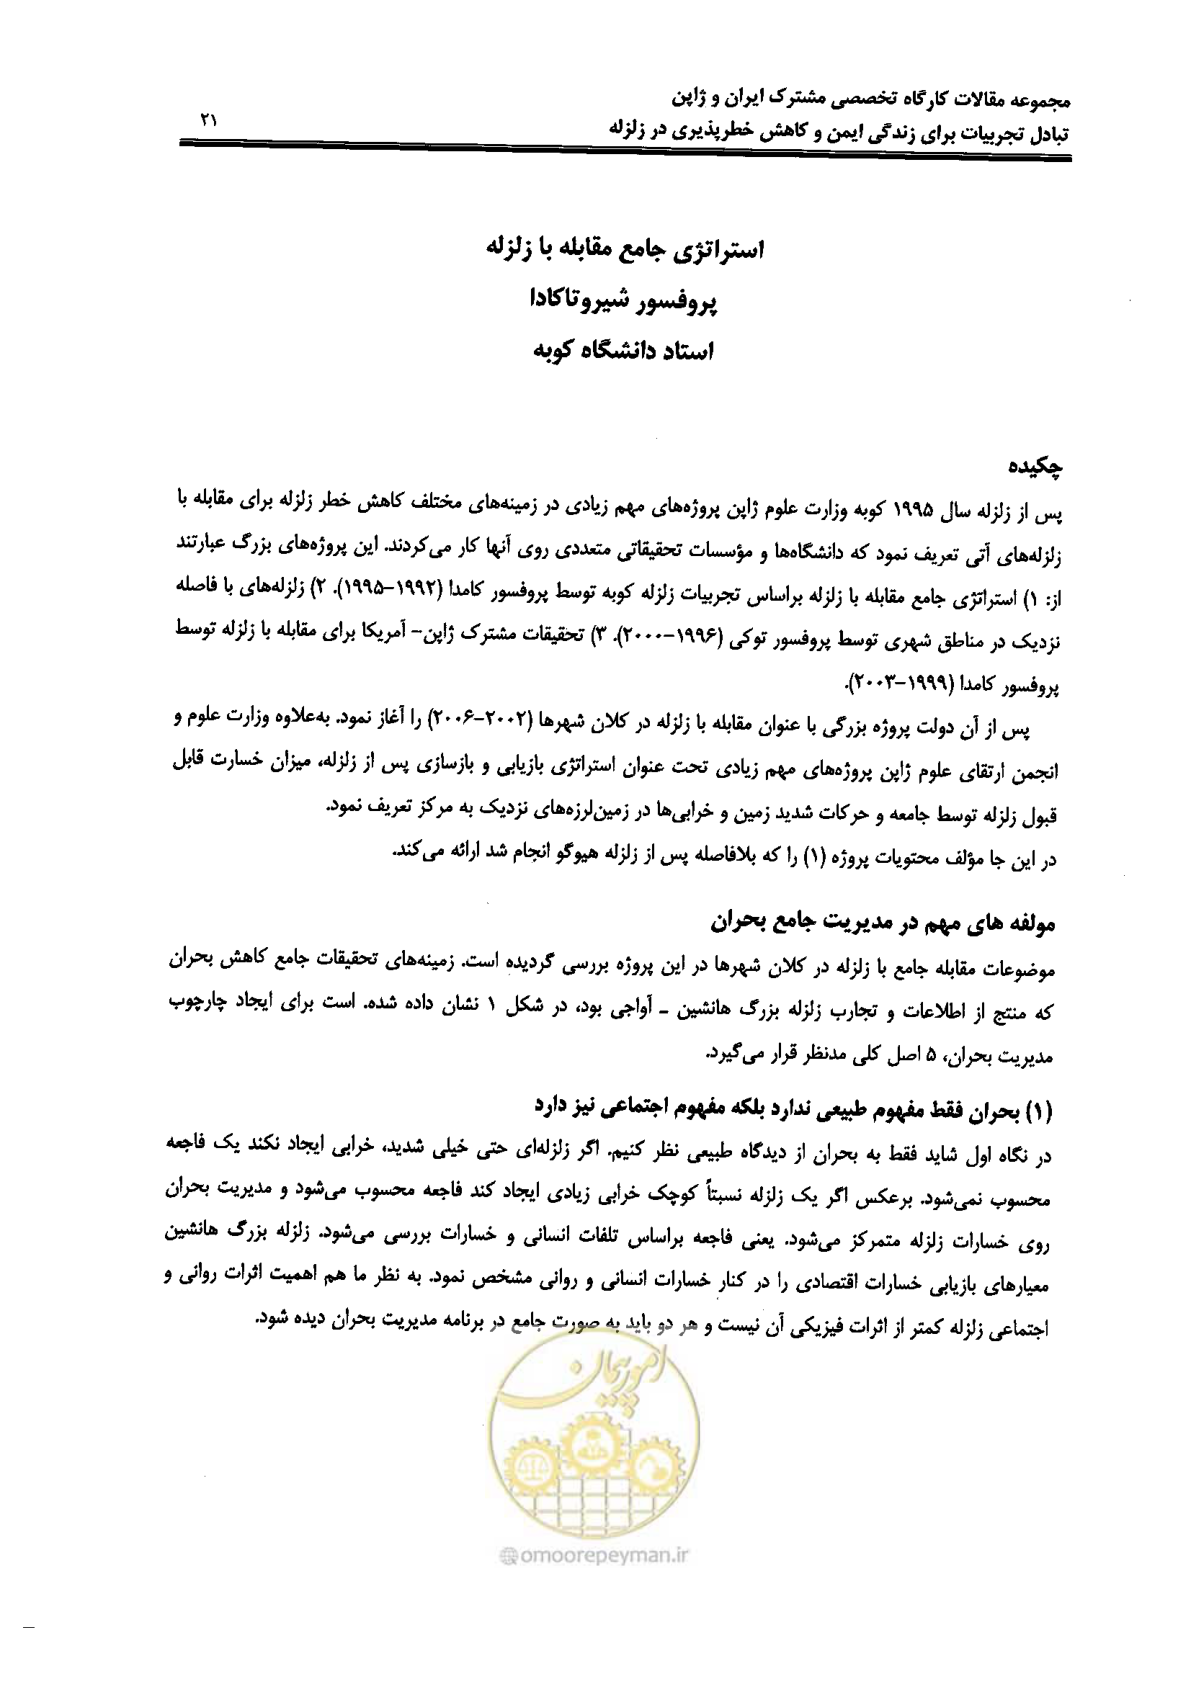 مجموعه مقالات کارگاه تخصصی مشترک ایران و ژاپن
تبادل تجربیات برای زندگی ایمن و کاهش خطرپذیری در زلزله
۲۱
استراتژی جامع مقابله با زلزله
پروفسور شیروتاکادا
استاد دانشگاه کوبه
چکیده
پس از زلزله سال ۱۹۹۵ کوبه وزارت علوم ژاپن پروژه‌های مهم زیادی در زمینه‌های مختلف کاهش خطر زلزله برای مقابله با
زلزله‌های آتی تعریف نمود که دانشگاه‌ها و مؤسسات تحقیقاتی متعددی روی آنها کار می‌کردند. این پروژه‌های بزرگ عبارتند
از: ۱) استراتژی جامع مقابله با زلزله براساس تجربیات زلزله کوبه توسط پروفسور کامدا (۱۹۹۲-۱۹۹۵). ۲) زلزله‌های با فاصله
نزدیک در مناطق شهری توسط پروفسور توکی (۱۹۹۶-۲۰۰۰). ۳) تحقیقات مشترک ژاپن- آمریکا برای مقابله با زلزله توسط
پروفسور کامدا (۱۹۹۹-۲۰۰۳).
پس از آن دولت پروژه بزرگی با عنوان مقابله با زلزله در کلان شهرها (۲۰۰۲-۲۰۰۶) را آغاز نمود. به‌علاوه وزارت علوم و
انجمن ارتقای علوم ژاپن پروژه‌های مهم زیادی تحت عنوان استراتژی بازیابی و بازسازی پس از زلزله، میزان خسارت قابل
قبول زلزله توسط جامعه و حرکات شدید زمین و خرابی‌ها در زمین‌لرزه‌های نزدیک به مرکز تعریف نمود.
در این جا مؤلف محتویات پروژه (۱) را که بلافاصله پس از زلزله هیوگو انجام شد ارائه می‌کند.
مولفه های مهم در مدیریت جامع بحران
موضوعات مقابله جامع با زلزله در کلان شهرها در این پروژه بررسی گردیده است. زمینه‌های تحقیقات جامع کاهش بحران
که منتج از اطلاعات و تجارب زلزله بزرگ هانشین ـ آواجی بود، در شکل ۱ نشان داده شده. است برای ایجاد چارچوب
مدیریت بحران، ۵ اصل کلی مدنظر قرار می‌گیرد.
(۱) بحران فقط مفهوم طبیعی ندارد بلکه مفهوم اجتماعی نیز دارد
در نگاه اول شاید فقط به بحران از دیدگاه طبیعی نظر کنیم. اگر زلزله‌ای حتی خیلی شدید، خرابی ایجاد نکند یک فاجعه
محسوب نمی‌شود. برعکس اگر یک زلزله نسبتاً کوچک خرابی زیادی ایجاد کند فاجعه محسوب می‌شود و مدیریت بحران
روی خسارات زلزله متمرکز می‌شود. یعنی فاجعه براساس تلفات انسانی و خسارات بررسی می‌شود. زلزله بزرگ هانشین
معیارهای بازیابی خسارات اقتصادی را در کنار خسارات انسانی و روانی مشخص نمود. به نظر ما هم اهمیت اثرات روانی و
اجتماعی زلزله کمتر از اثرات فیزیکی آن نیست و هر دو باید به صورت جامع در برنامه مدیریت بحران دیده شود.
امور پیمان
omoorepeyman.ir